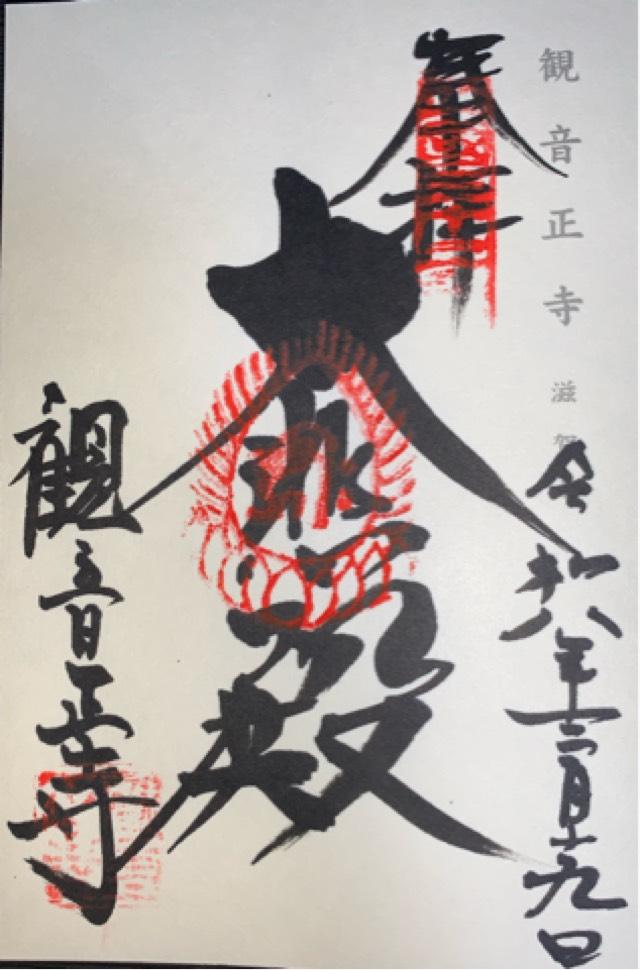 観音正寺 滋賀
令和八年 月十九日
奉拝
大悲殿
観音正寺